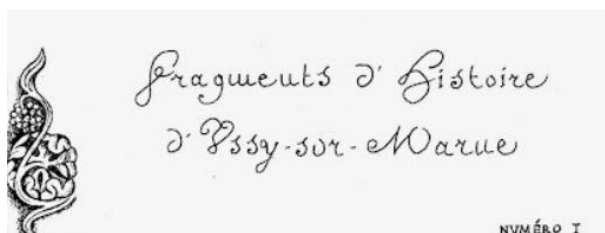 Fragments d'Histoire
d'Ussy-sur-Marne
NUMÉRO I